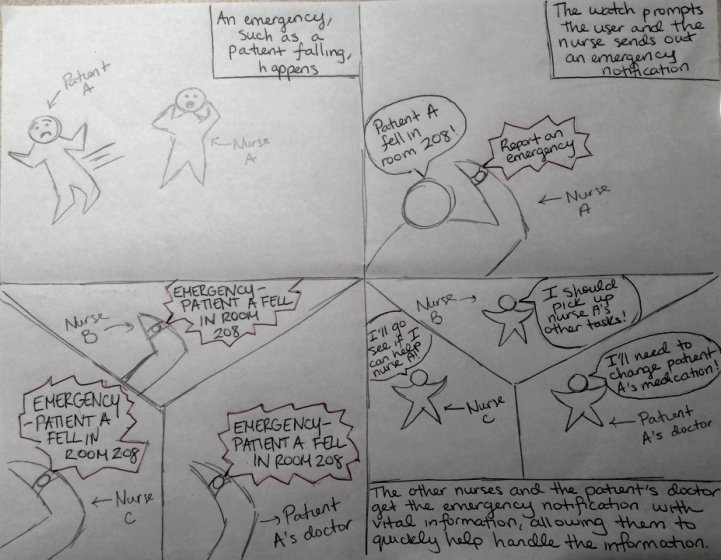 An emergency,
such as a
patient falling,
happens
Patient
A
Nurse
A
The watch prompts
the user and the
nurse sends out
an emergency
notification
Patient A
fell in
room 208!
Report an
emergency
Nurse
A
EMERGENCY-
PATIENT A FELL
IN ROOM
208
Nurse
B
EMERGENCY
-PATIENT A
FELL IN
ROOM 208
Nurse
C
EMERGENCY-
PATIENT A FELL
IN ROOM 208
Patient
A's doctor
Nurse
B
I should
pick up
nurse A's
other tasks!
I'll go
see if I
can help
nurse A!
Nurse
C
I'll need to
change patient
A's medication!
Patient
A's doctor
The other nurses and the patient's doctor
get the emergency notification with
vital information, allowing them to
quickly help handle the information.